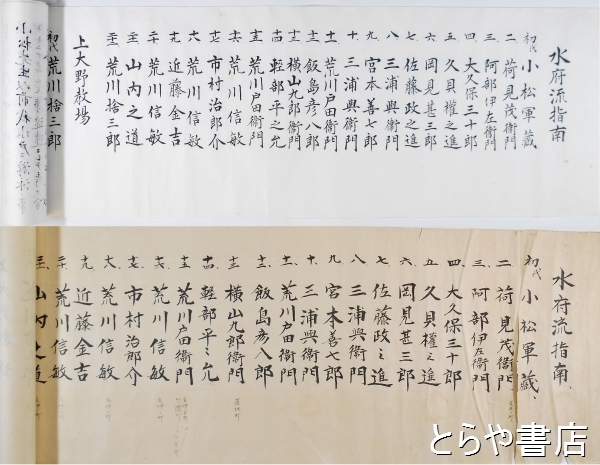 水府流指南
初代 小松軍藏
二 荷見茂衛門
三 阿部伊左衛門
四 大久保三十郎
五 久貝權之進
六 岡見甚三郎
七 佐藤政之進
八 三浦興衛門
九 宮本善七郎
十 三浦興衛門
十一 荒川戸田衛門
十二 飯島彦八郎
十三 横山九郎衛門
十四 軽部平之允
十五 荒川戸田衛門
十六 荒川信敏
十七 市村治郎介
十八 荒川信敏
十九 近藤金吉
二十 荒川信敏
二十一 山内之道
二十二 荒川捨三郎
上大野教場
初代 荒川捨三郎
水府流指南
初代 小松軍藏
二 荷見茂衛門
三 阿部伊左衛門
四 大久保三十郎
五 久貝權之進
六 岡見甚三郎
七 佐藤政之進
八 三浦興衛門
九 宮本善七郎
十 三浦興衛門
十一 荒川戸田衛門
十二 飯島彦八郎
十三 横山九郎衛門
十四 軽部平之允
十五 荒川戸田衛門
十六 荒川信敏
十七 市村治郎介
十八 荒川信敏
十九 近藤金吉
二十 荒川信敏
二十一 山内之道
とらや書店